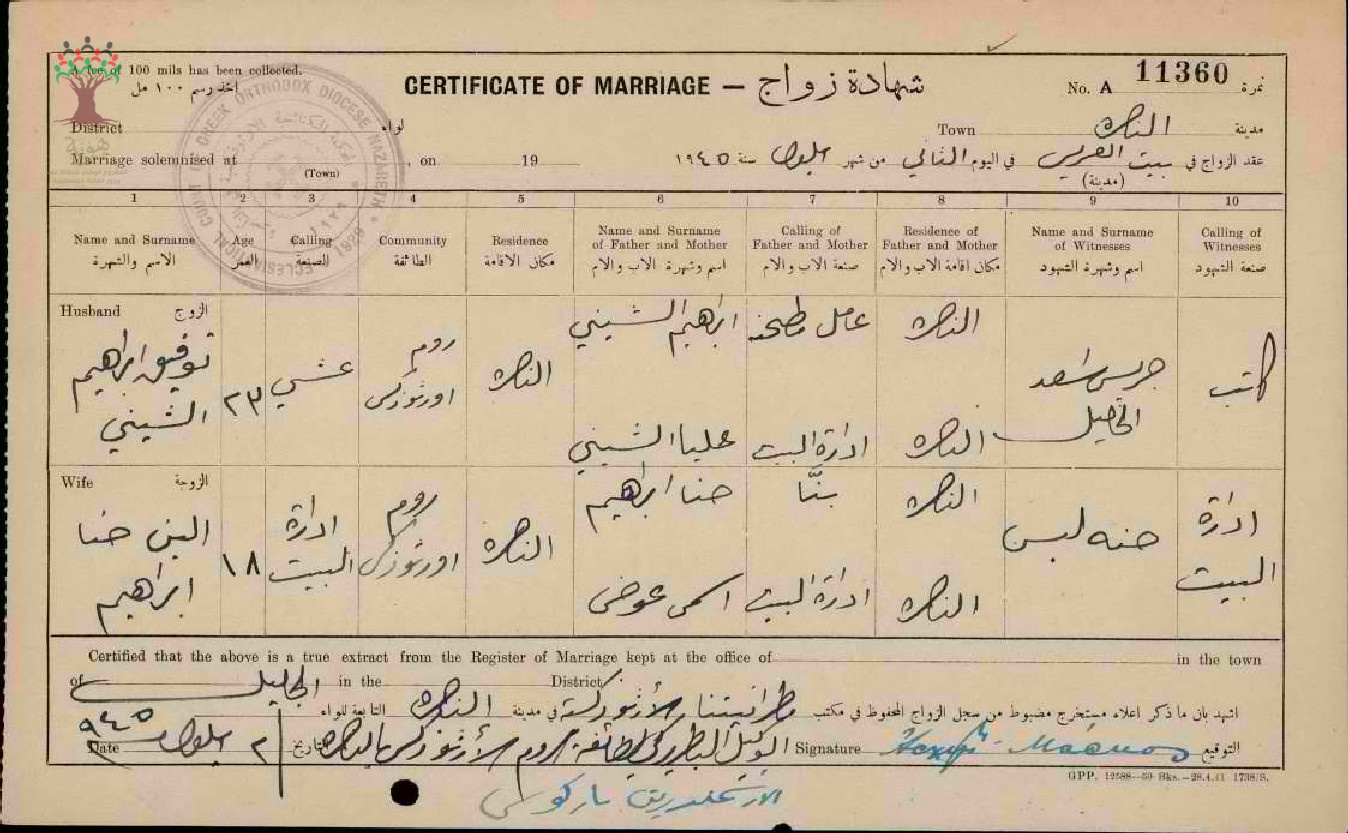 A fee of 100 mils has been collected.
اخذ رسم ١٠٠ مل
CERTIFICATE OF MARRIAGE — شهادة زواج
No. A 11360 نمرة
District لواء
Town الناصرة مدينة
Marriage solemnised at , on 19
(Town)
عقد الزواج في بيت العريس في اليوم الثاني من شهر ايلول سنة ١٩٤٥
(مدينة)
COURT OF GREEK ORTHODOX DIOCESE NAZARETH
1 2 3 4 5 6 7 8 9 10
Name and Surname
الاسم والشهرة
Age
العمر
Calling
الصنعة
Community
الطائفة
Residence
مكان الاقامة
Name and Surname of Father and Mother
اسم وشهرة الاب والام
Calling of Father and Mother
صنعة الاب والام
Residence of Father and Mother
مكان اقامة الاب والام
Name and Surname of Witnesses
اسم وشهرة الشهود
Calling of Witnesses
صنعة الشهود
Husband الزوج
توفيق ابراهيم
الشيني
٢٣
عشي
روم
اورثوذكس
الناصرة
ابراهيم الشيني
عليا الشيني
عامل مطحنه
ادارة البيت
الناصرة
الناصرة
جريس اسعد
كاتب
Wife الزوجة
حنا
ابراهيم
١٨
ادارة
البيت
روم
اورثوذكس
الناصرة
حنا ابراهيم
اسمى عوض
بنّا
ادارة البيت
الناصرة
الناصرة
حنه
ادارة
البيت
Certified that the above is a true extract from the Register of Marriage kept at the office of in the town
of in the District
اشهد بان ما ذكر اعلاه مستخرج مضبوط من سجل الزواج المحفوظ في مكتب مطرانيتنا الأرثوذكسية في مدينة الناصرة التابعة للواء الجليل
Date ٢ ايلول ٩٤٥ التاريخ
الوكيل البطريركي لطائفة الروم الأرثوذكس بالناصرة
Signature التوقيع
الارشمندريت ماركوس
GPP. 12588—50 Bks.—28.4.41 1738/S.